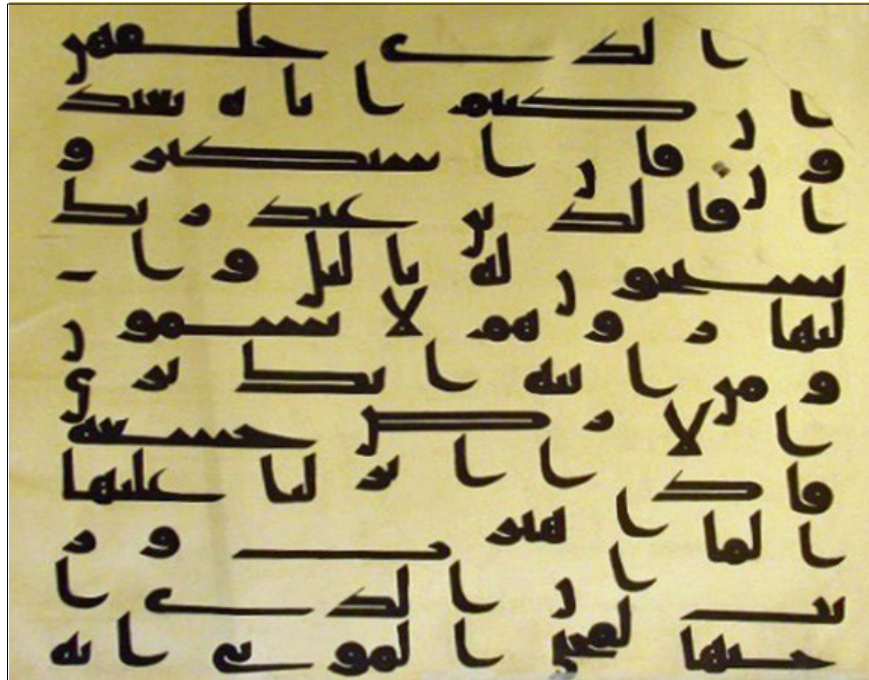 الذي خلقهن
ان كنتم اياه تعبد
ون فان استكبرو
ا فالذين عند ربك
يسبحون له باليل وا
لنهار وهم لا يسمون
ومن ايته انك تري
الارض خشعه
فاذا انزلنا عليها
الما اهتزت ور
بت ان الذي ا
حيها لمحي الموتي انه